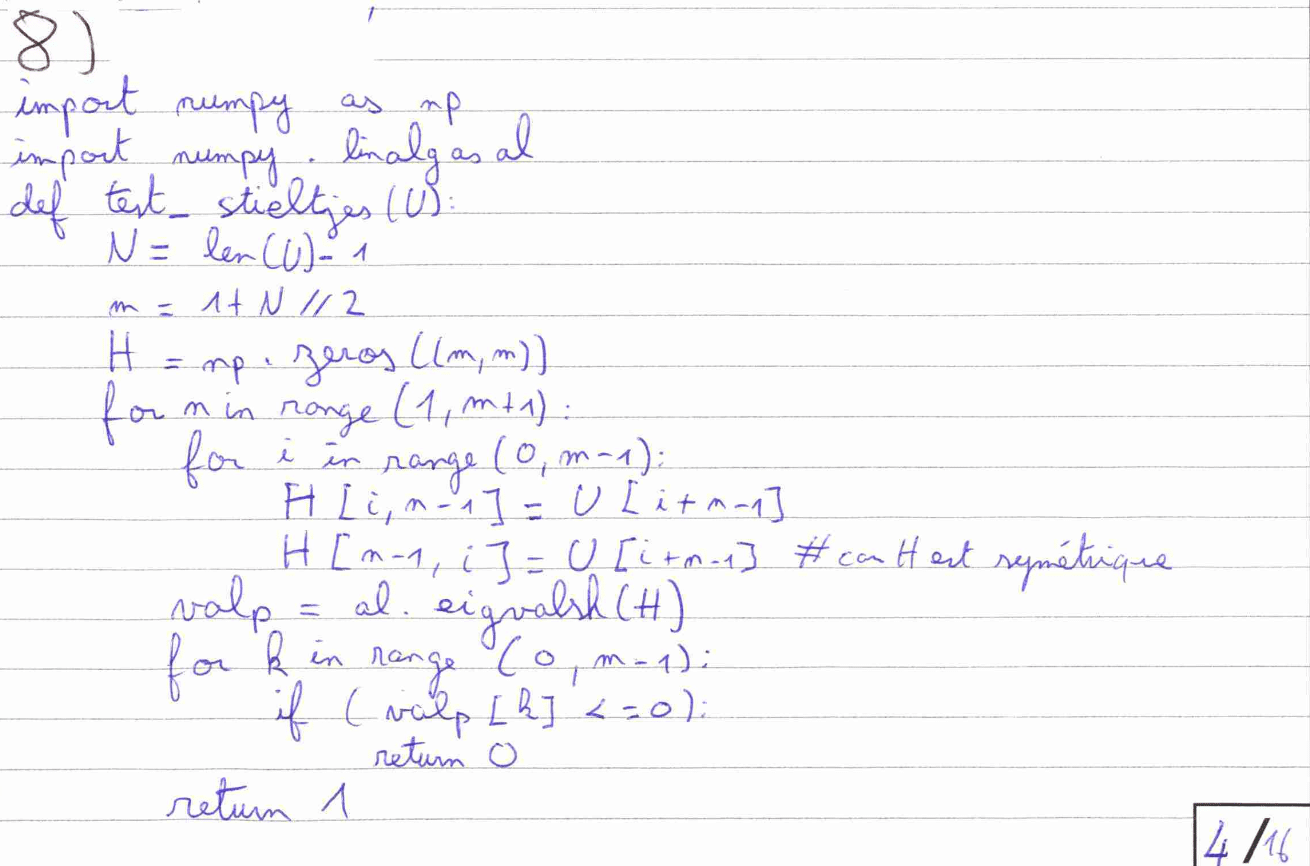 8)
import numpy as np
import numpy.linalg as al
def test_stieltjes(U):
N = len(U)-1
m = 1+N//2
H = np.zeros((m,m))
for n in range(1,m+1):
for i in range(0,m-1):
H[i,n-1] = U[i+n-1]
H[n-1,i] = U[i+n-1] #car H est symétrique
valp = al.eigvalsh(H)
for k in range (0,m-1):
if (valp[k] <=0):
return 0
return 1
4/16